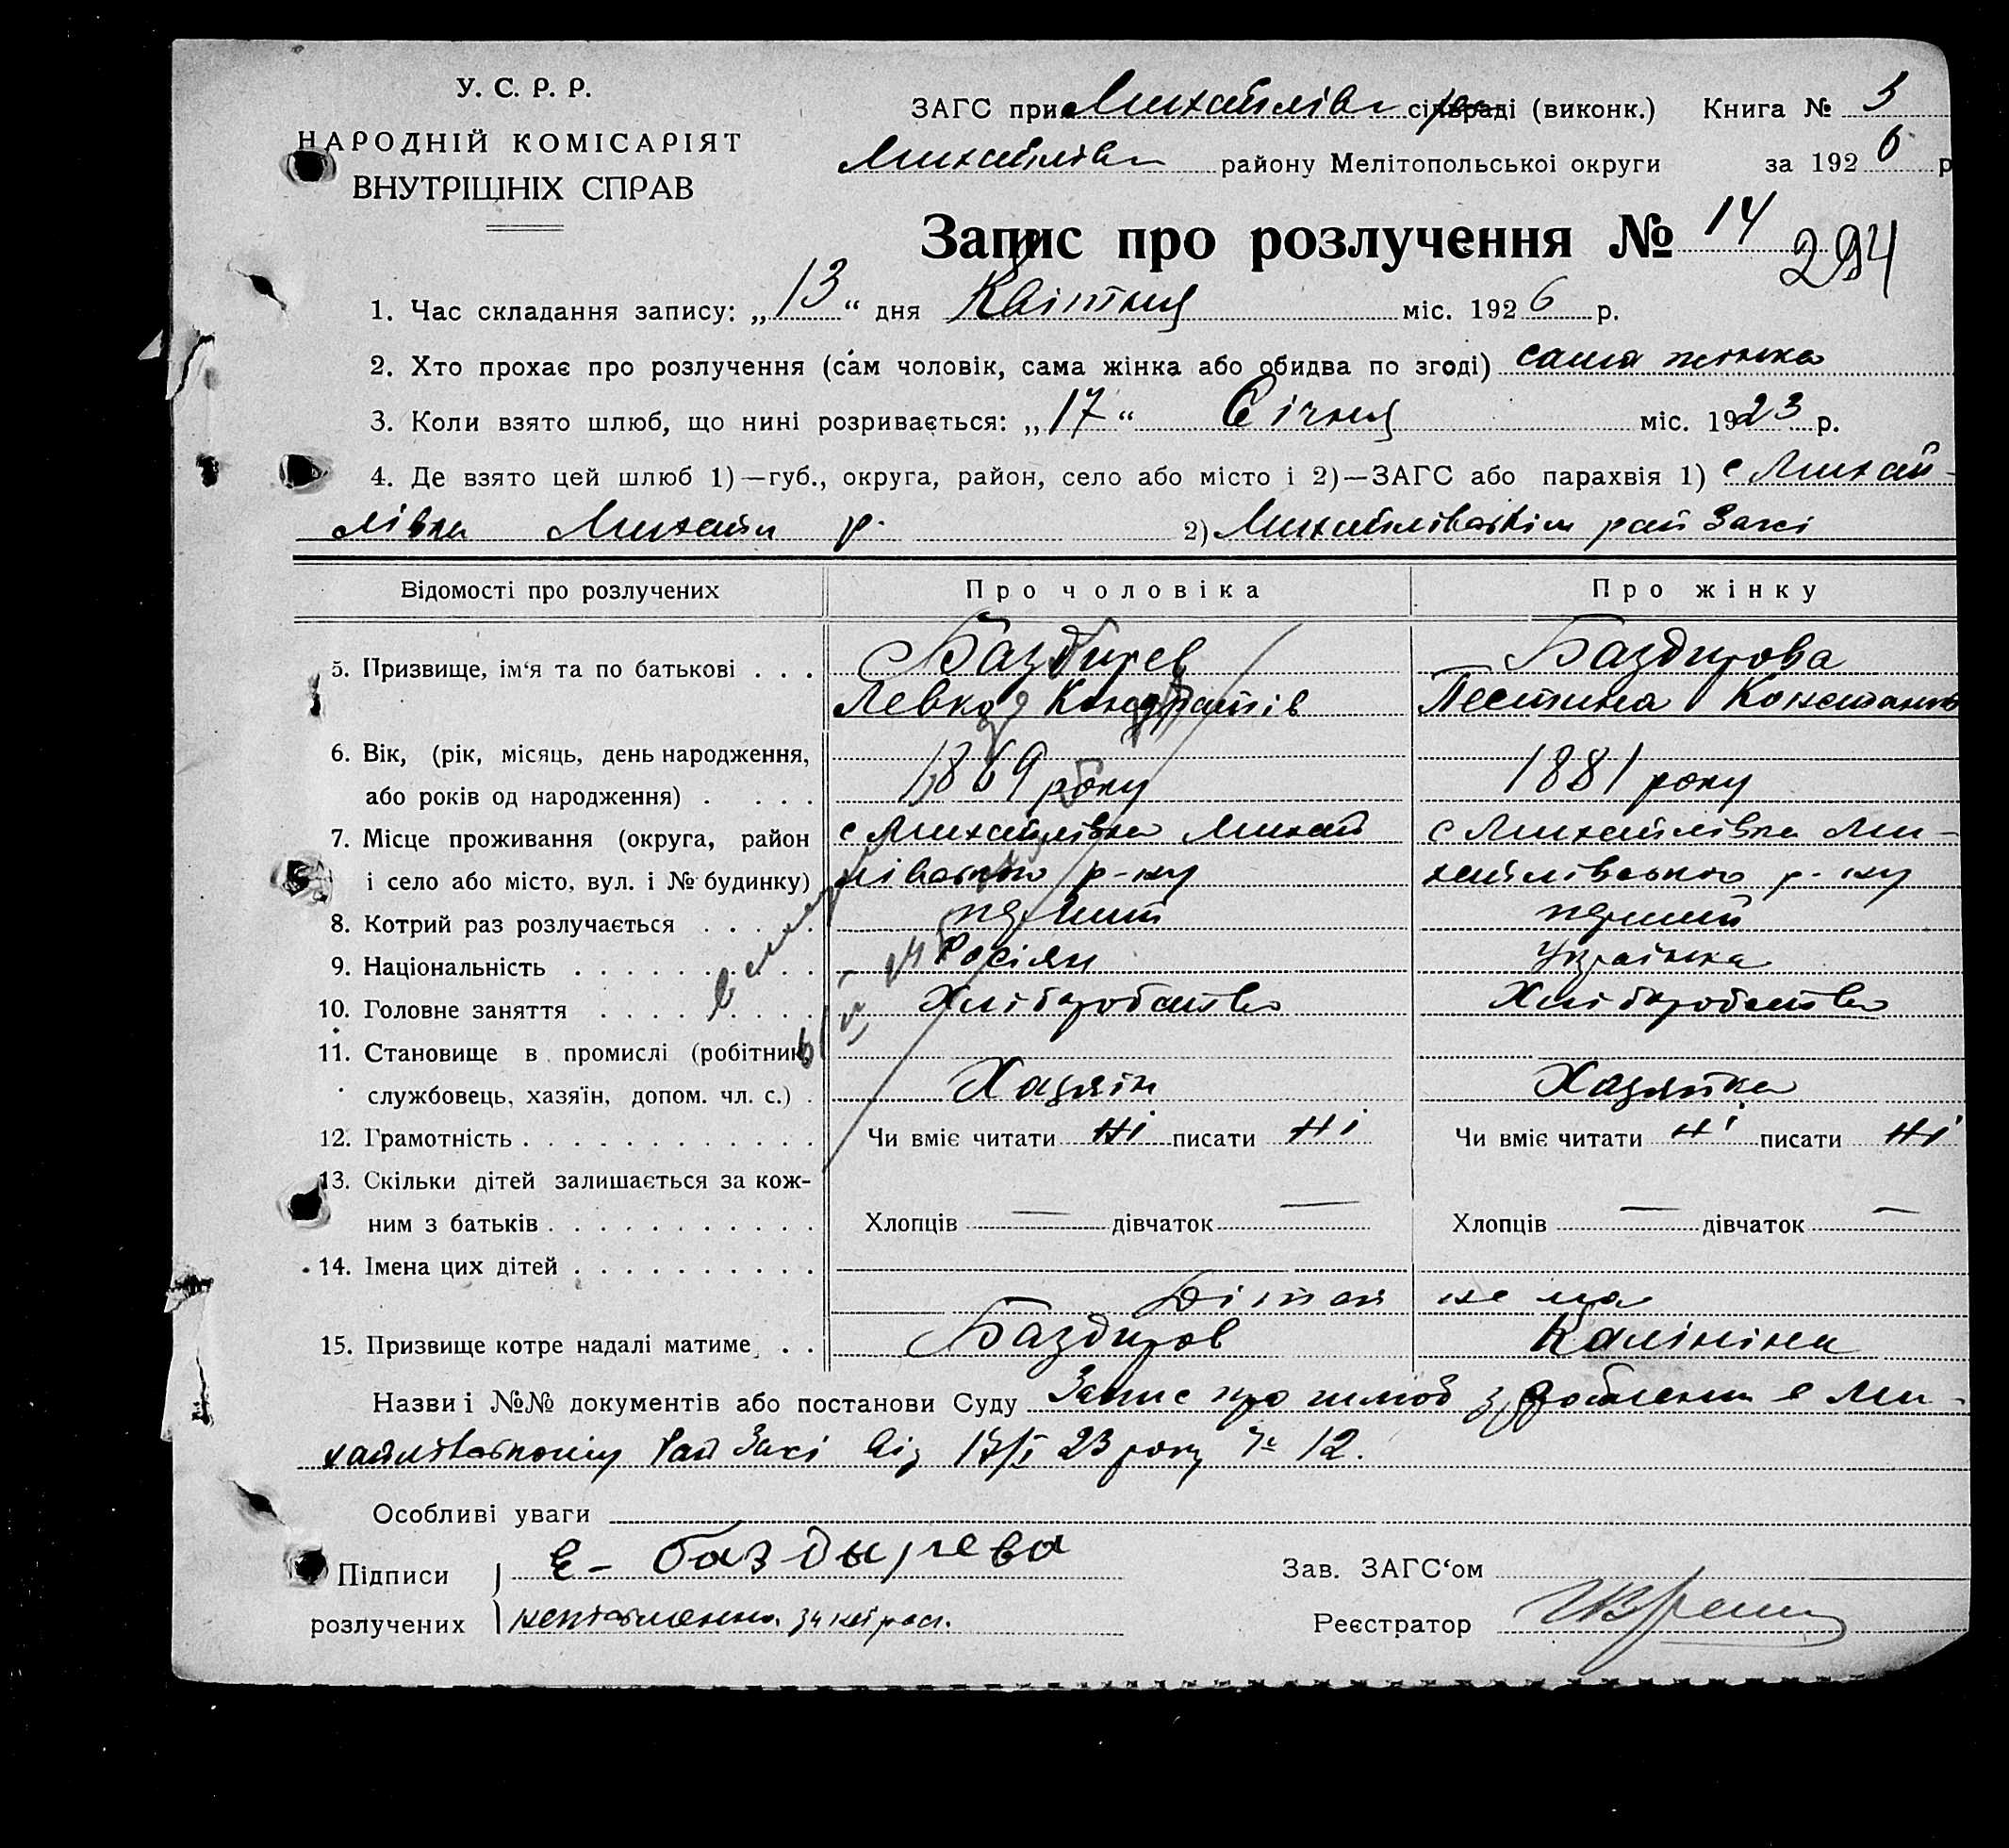 У. С. Р. Р.
НАРОДНІЙ КОМІСАРІЯТ
ВНУТРІШНІХ СПРАВ
ЗАГС при Михайлівс сільраді (виконк.) Книга № 3
Михайлівс району Мелітопольської округи за 1926 р
Запис про розлучення № 14
294
1. Час складання запису: „13“ дня Квітня міс. 1926 р.
2. Хто прохає про розлучення (сам чоловік, сама жінка або обидва по згоді) сама жінка
3. Коли взято шлюб, що нині розривається: „17“ Січня міс. 1923 р.
4. Де взято цей шлюб 1)—губ., округа, район, село або місто і 2)—ЗАГС або парахвія 1) с Михай-
лівка Михайл р. 2) Михайлівськім рай Загсі
Відомості про розлучених Про чоловіка Про жінку
5. Призвище, ім‘я та по батькові . . . Баздирев Баздирова
Левко Кондратів Пестина Констант
6. Вік, (рік, місяць, день народження,
або років од народження) . . . . 1869 року 1881 року
7. Місце проживання (округа, район с Михайлівка Михай с Михайлівка Ми-
і село або місто, вул. і № будинку) лівського р-ну хайлівського р-ну
8. Котрий раз розлучається . . . . . перший перший
9. Національність . . . . . . . . . . Росіян Українка
10. Головне заняття . . . . . . . . Хліборобство Хліборобство
11. Становище в промислі (робітник,
службовець, хазяїн, допом. чл. с.) . Хазяїн Хазяйка
12. Грамотність . . . . . . . . . . . . Чи вміє читати ні писати ні Чи вміє читати ні писати ні
13. Скільки дітей залишається за кож-
ним з батьків . . . . . . . . . . . Хлопців — дівчаток — Хлопців — дівчаток —
14. Імена цих дітей . . . . . . . . . .
Дітей не ма
15. Призвище котре надалі матиме . . Баздиров Калініна
Назви і №№ документів або постанови Суду Запис про шлюб зроблений в Ми-
хайлівському Рай Загсі від 17/I 23 року № 12.
Особливі уваги
Підписи Е- баздырева Зав. ЗАГС‘ом
розлучених Реєстратор